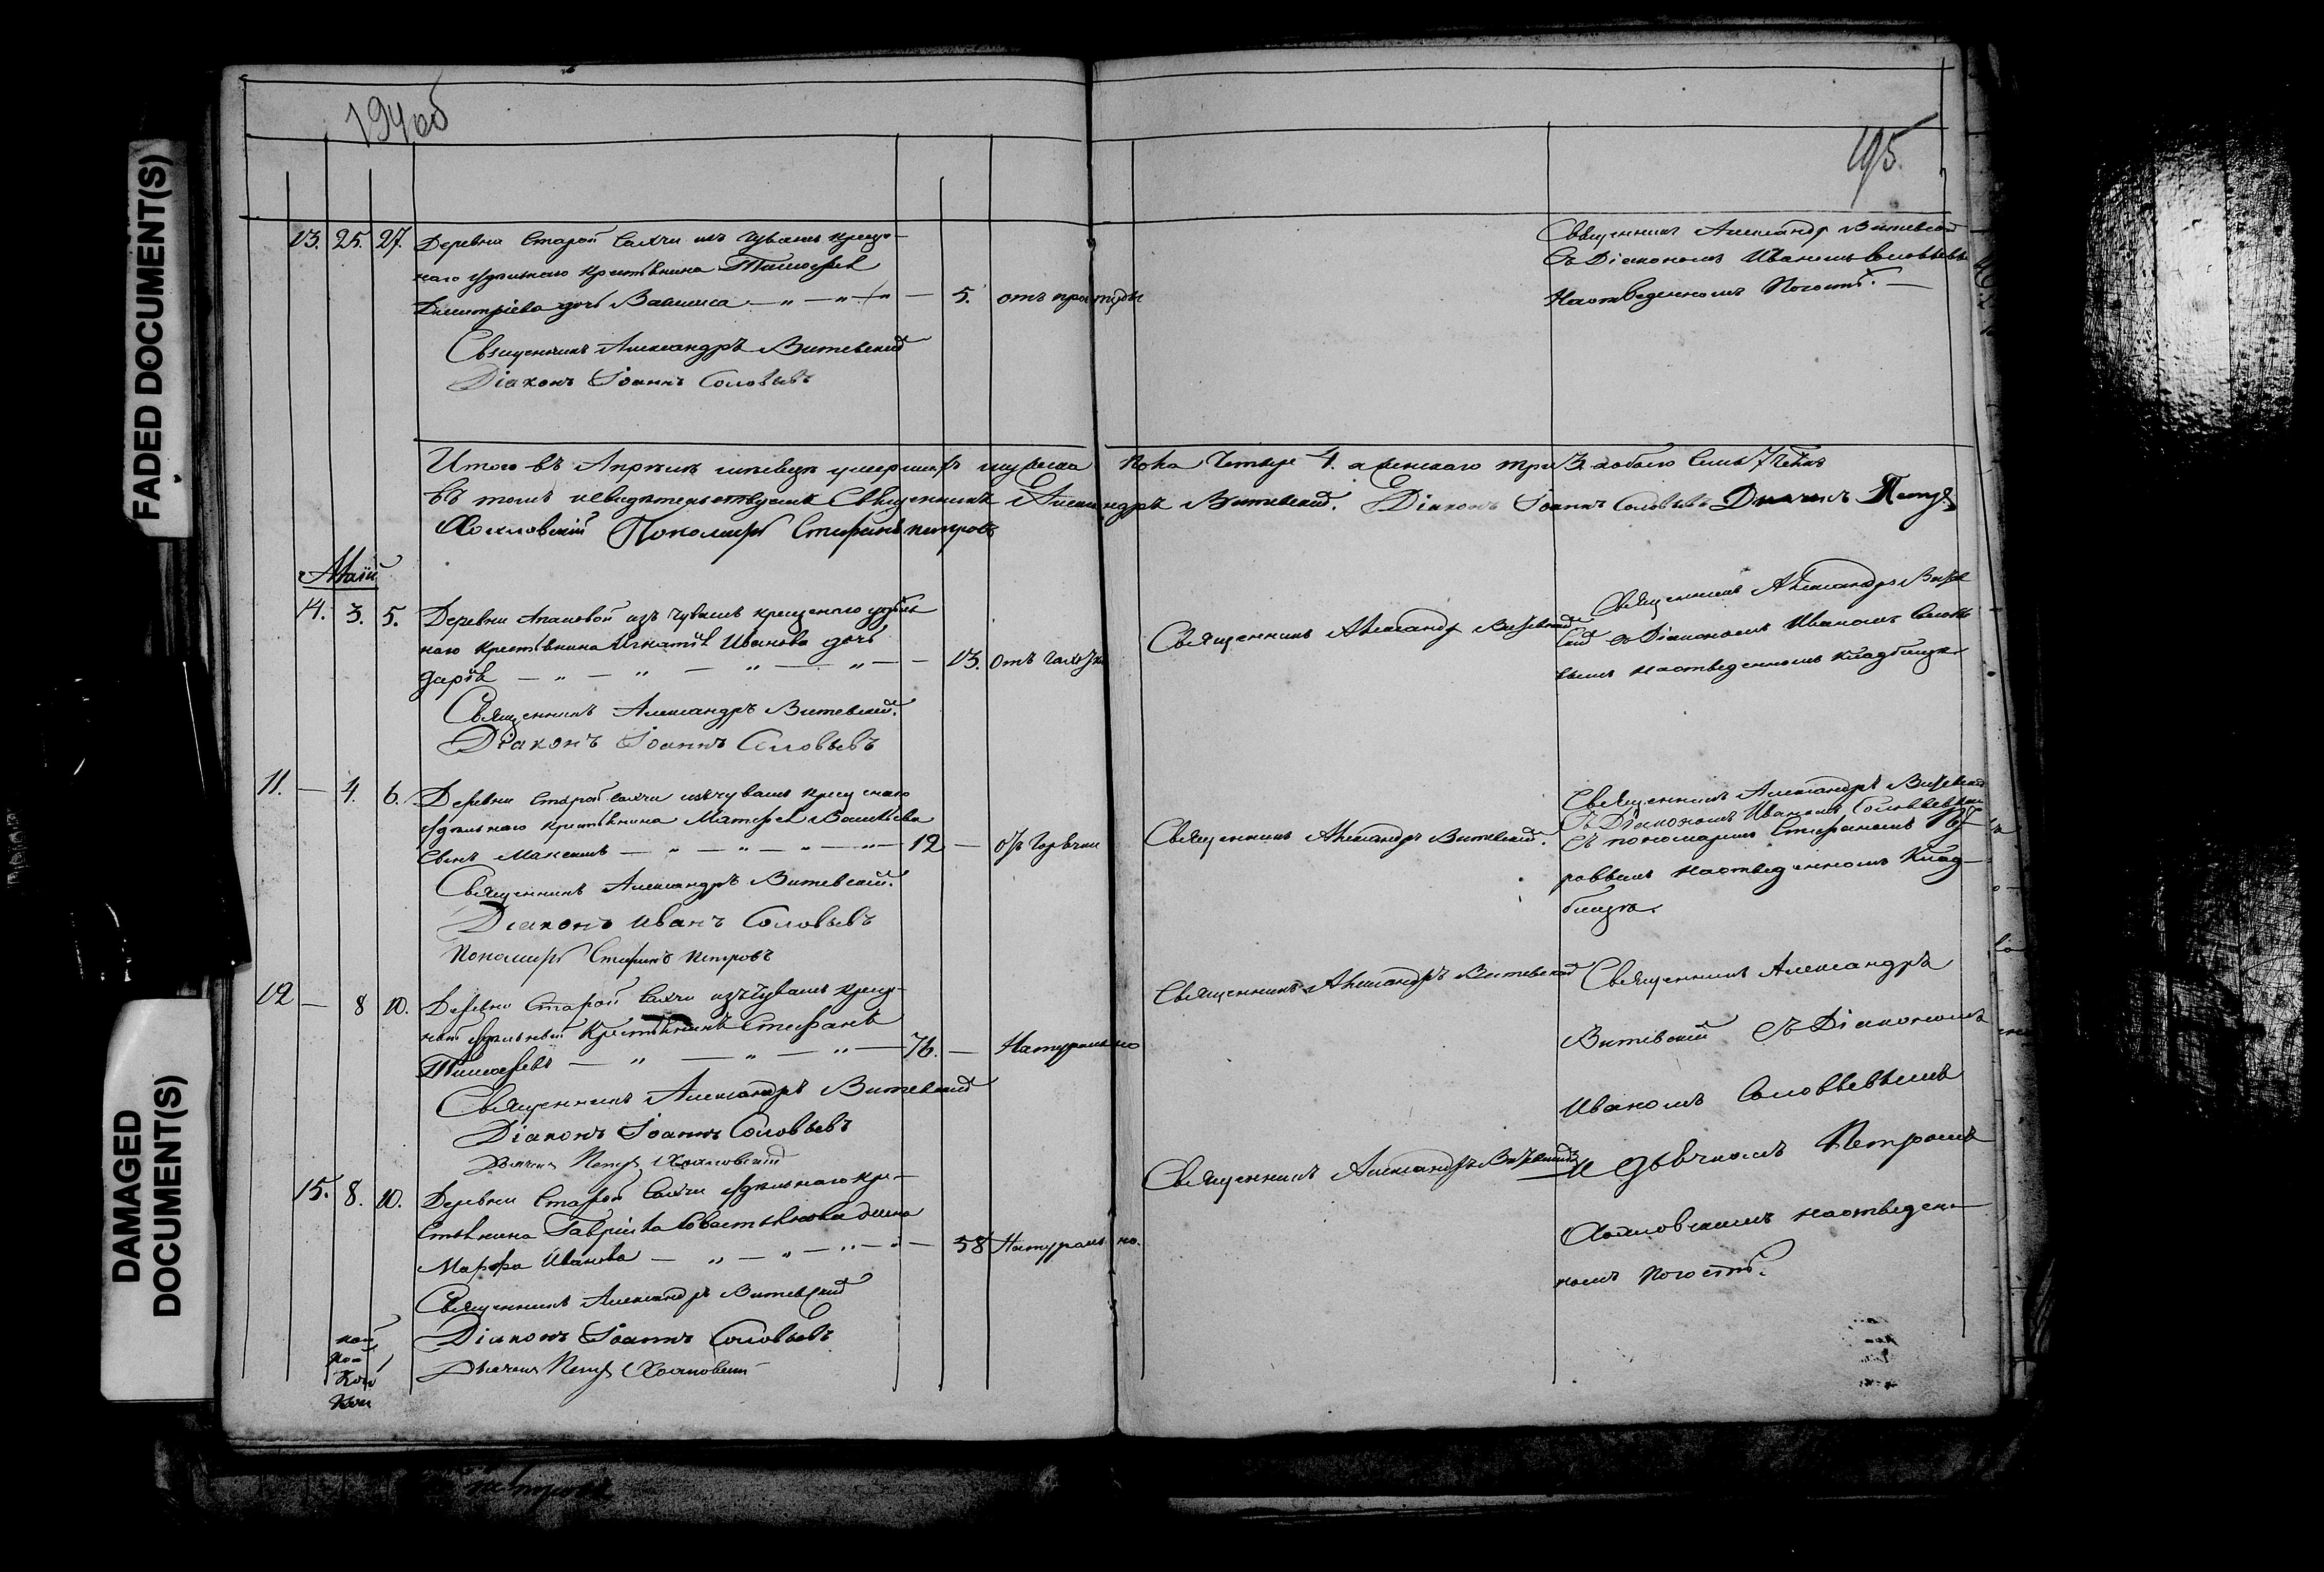 194об
195.
13. 25. 27. Деревни Старой Сахчи изъ Чувашъ креще-
наго удѣльнаго крестьянина Тимоѳея
Димитріева дочь Васлиса — „ — „ — 5. отъ простуды
Священникъ Александръ Витевскій
Діаконъ Іоаннъ Соловьевъ
Священникъ Александръ Витевскій
съ Діакономъ Иваномъ Соловьевымъ
на отведенномъ Погостѣ. —
Итого въ Апрѣлѣ мѣсяцѣ умершихъ мужеска пола Четыре 4. а женскаго три 3. обоего семь 7 челов
въ томъ и свидѣтельствуемъ Священникъ Александръ Витевскій. Діаконъ Іоаннъ Соловьевъ Дьячекъ Петръ
Пономарь Стефанъ Петровъ
Май
14. 3. 5. Деревни изъ чувашъ крещенаго удѣль
наго крестьянина Игнатія Иванова дочь
Дарія — „ — „ — „ — „ — 13. отъ
Священникъ Александръ Витевскій.
Діаконъ Іоаннъ Соловьевъ
Священникъ Александръ Витевскій
Священникъ Александръ Витев
скій съ Діакономъ Иваномъ Соловь
вымъ на отведенномъ кладбищѣ
11. — 4. 6. Деревни Старой Сахчи изъ чувашъ крещенаго
удѣльнаго крестьянина Матфея Васильева
сынъ Максимъ — „ — „ — „ — „ — 12 — отъ Горячки
Священникъ Александръ Витевскій.
Діаконъ Иванъ Соловьевъ
Пономарь Стефанъ Петровъ
Священникъ Александръ Витевскій.
Священникъ Александръ Витевскій
съ Діакономъ Иваномъ Соловьевымъ
съ пономаремъ Стефаномъ Пет
ровымъ на отведенномъ Клад-
бищѣ.
12 — 8 10. Деревни Старой Сахчи изъ Чувашъ креще-
ный удѣльный Крестьянинъ Стефанъ
Тимоѳеевъ — „ — „ — „ — 76. — Натурально
Священникъ Александръ Витевскій
Діаконъ Іоаннъ Соловьевъ
Дьячекъ Петръ
Священникъ Александръ Витевскій
Священникъ Александръ
Витевскій съ Діакономъ
Иваномъ Соловьевымъ
и дьячкомъ Петромъ
на отведен-
номъ погостѣ.
15. 8. 10. Деревни Старой Сахчи удѣльнаго кре-
стьянина Гавріила Севастьянова жена
Марфа Иванова — „ — „ — „ — „ — 58 Натурально.
Священникъ Александръ Витевскій
Діаконъ Іоаннъ Соловьевъ
Дьячекъ Петръ
Священникъ Александръ Витевскій
FADED DOCUMENT(S)
DAMAGED
DOCUMENT(S)